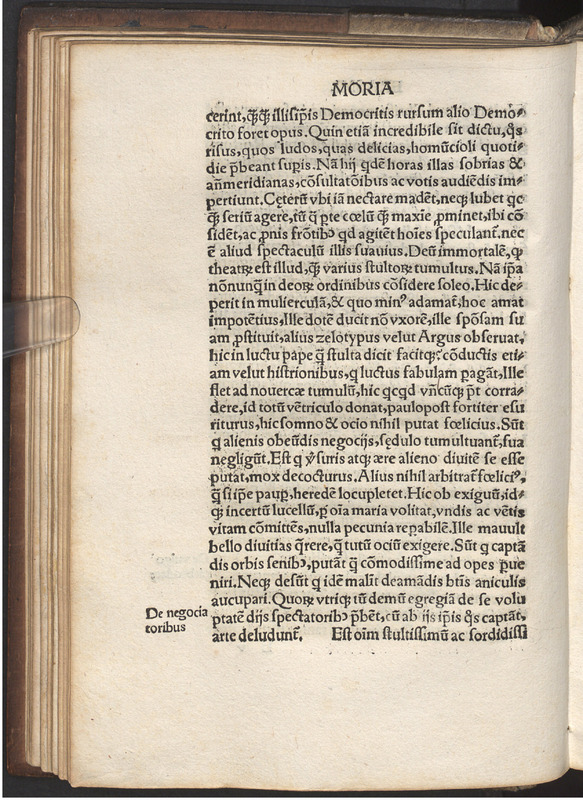 MORIA
cerint, ꝗ̃ꝗ̃ illis ip̃is Democritis rursum alio Demo⸗
crito foret opus. Quin etiã incredibile sit dictu, q̃s
risus, quos ludos, quas delicias, homũcioli quoti⸗
die p̃beant sup̃is. Nã hij qdẽ horas illas sobrias &
añmeridianas, cõsultatõibus ac votis audiẽdis im⸗
pertiunt. Cęterũ vbi iã nectare madẽt, neqꝫ lubet qc
ꝗ̃ seriũ agere, tũ q̃ p̱te cœlũ q̃ maxĩe ꝓminet, ibi cõ
sidẽt, ac ꝓnis frõtibꝰ qd agitẽt hoĩes speculant̃. nec
ẽ aliud spectaculũ illis suauius. Deũ immortalẽ, ꝙ
theatrꝫ est illud, ꝗ̃ varius stultorꝫ tumultus. Nã ip̃a
nõnunq̃ in deorꝫ ordinibus cõsidere soleo. Hic de⸗
perit in mulierculã, & quo minꝰ adamat̃, hoc amat
impotẽtius, Ille dotẽ ducit nõ vxorẽ, ille spõsam su
am ꝓstituit, alius zelotypus velut Argus obseruat,
hic in luctu pape q̃ stulta dicit facitqꝫ: cõductis eti⸗
am velut histrionibus, q luctus fabulam p̱agãt, Ille
flet ad nouercæ tumulũ, hic qcqd vñcũqꝫ p̃t corra⸗
dere, id totũ vẽtriculo donat, paulopost fortiter esu
riturus, hic somno & ocio nihil putat fœlicius. Sũt
q alienis obeũdis negocijs, sędulo tumultuant̃, sua
negligũt. Est q ỹsuris atqꝫ ære alieno diuitẽ se esse
putat, mox decocturus. Alius nihil arbitrat̃ fœliciꝰ,
q̃ si ip̃e paup̱, heredẽ locupletet. Hic ob exiguũ, id⸗
qꝫ incertũ lucellũ, p̱ oĩa maria volitat, vndis ac vẽtis
vitam cõmittẽs, nulla pecunia rep̱abilẽ. Ille mauult
bello diuitias q̃rere, q̃ tutũ ociũ exigere. Sũt q captã
dis orbis senibꝰ, putãt q̃ cõmodissime ad opes p̱ue
niri. Neqꝫ desũt q idẽ malĩt deamãdis bt̃is aniculis
aucupari. Quorꝫ vtriqꝫ tũ demũ egregiã de se volu
ptatẽ dijs spectatoribꝰ p̃bẽt, cũ ab ijs ip̃is q̃s captãt,
arte deludunt̃. Est oĩm stultissimũ ac sordidissi
De negocia
toribus